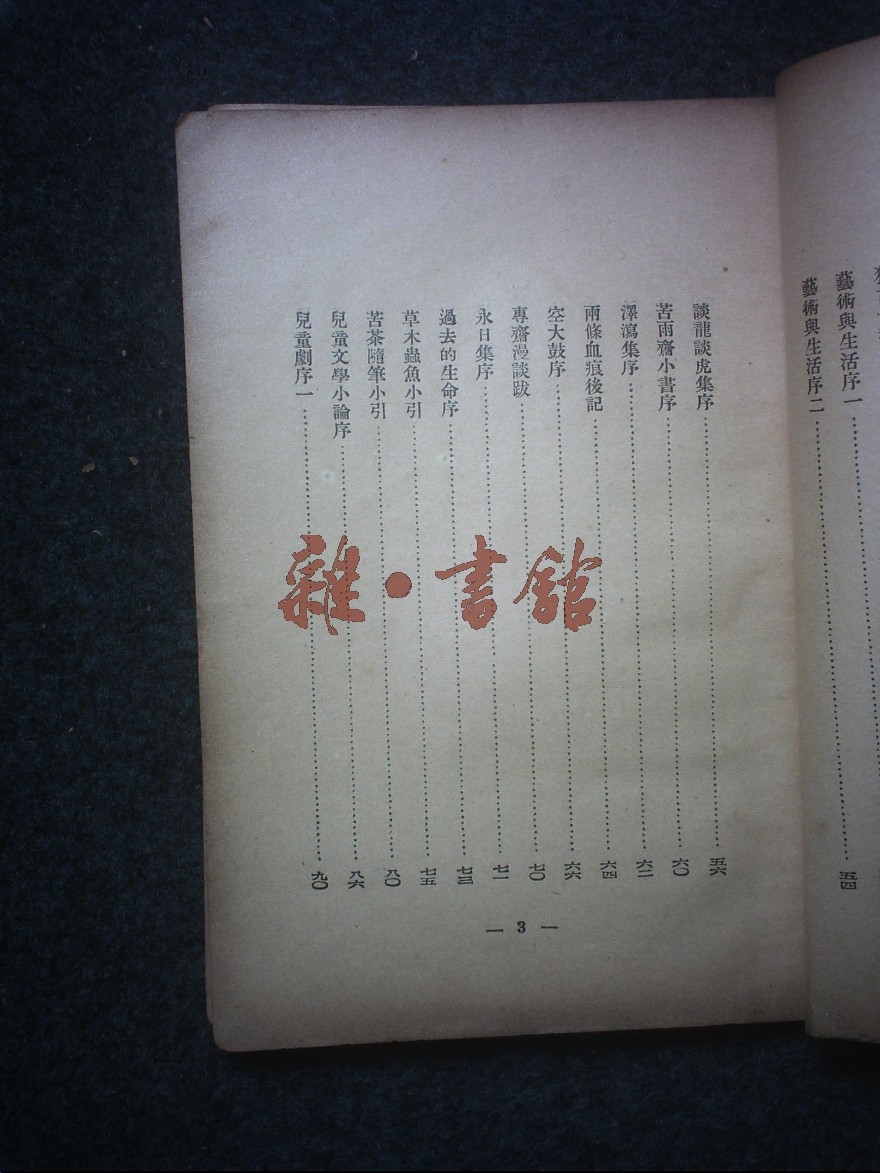 藝術與生活序一
藝術與生活序二……五四
談龍談虎集序……五六
苦雨齋小書序……六〇
澤瀉集序……六二
兩條血痕後記……六四
空大鼓序……六六
專齋漫談跋……七〇
永日集序……七一
過去的生命序……七三
草木蟲魚小引……七五
苦茶隨筆小引……八〇
兒童文學小論序……八六
兒童劇序一……九〇
— 3 —
雜•書館